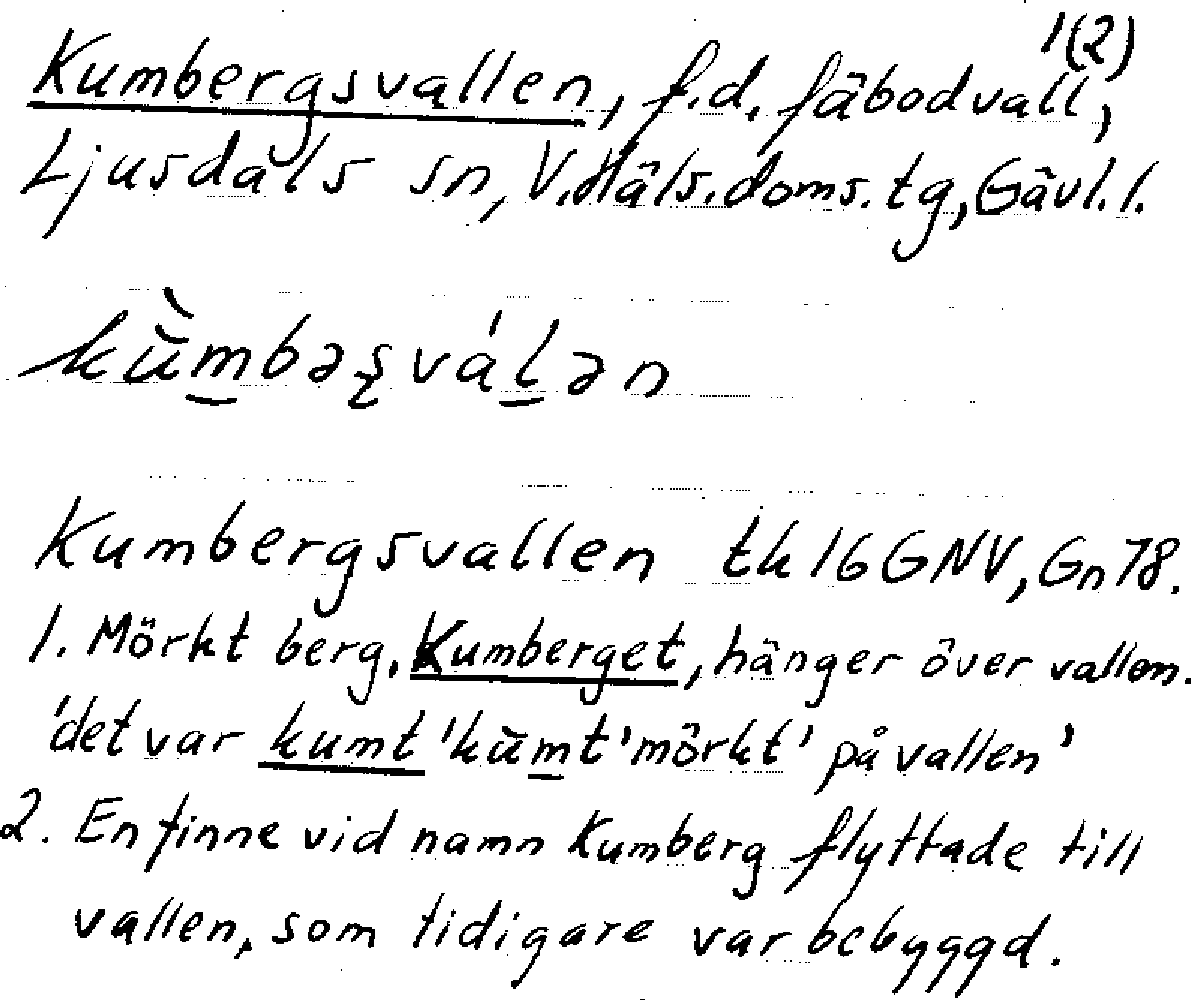 1(2)
Kumbergsvallen, f.d. fäbodvall,
Ljusdals sn, V.Häls.doms.tg, Gävl.l.
kŭ̀mbəʂválən
Kumbergsvallen tk 16GNV, Gn78.
1. Mörkt berg, Kumberget, hänger över vallen.
'det var kumt 'kŭmt 'mörkt' på vallen'
2. En finne vid namn Kumberg flyttade till
vallen, som tidigare var bebyggd.